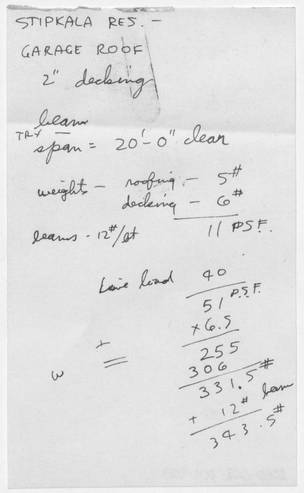 STIPKALA RES. -
GARAGE ROOF
2" decking
beam
TRY span = 20'-0" clear
weights - roofing - 5#
decking - 6#
beams - 12#/ft 11 P.S.F.
Live load 40
51 P.S.F.
x6.5
255
306
w = 331.5#
+ 12# beam
343.5#